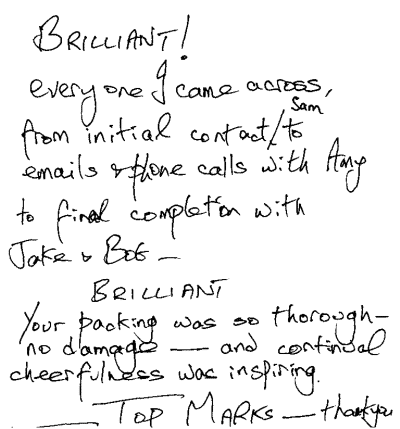 BRILLIANT!
everyone I came across,
Sam
from initial contact/to
emails & phone calls with Amy
to final completion with
Jake & Bob –
BRILLIANT
Your packing was so thorough –
no damage – and continual
cheerfulness was inspiring.
TOP MARKS – thankyou